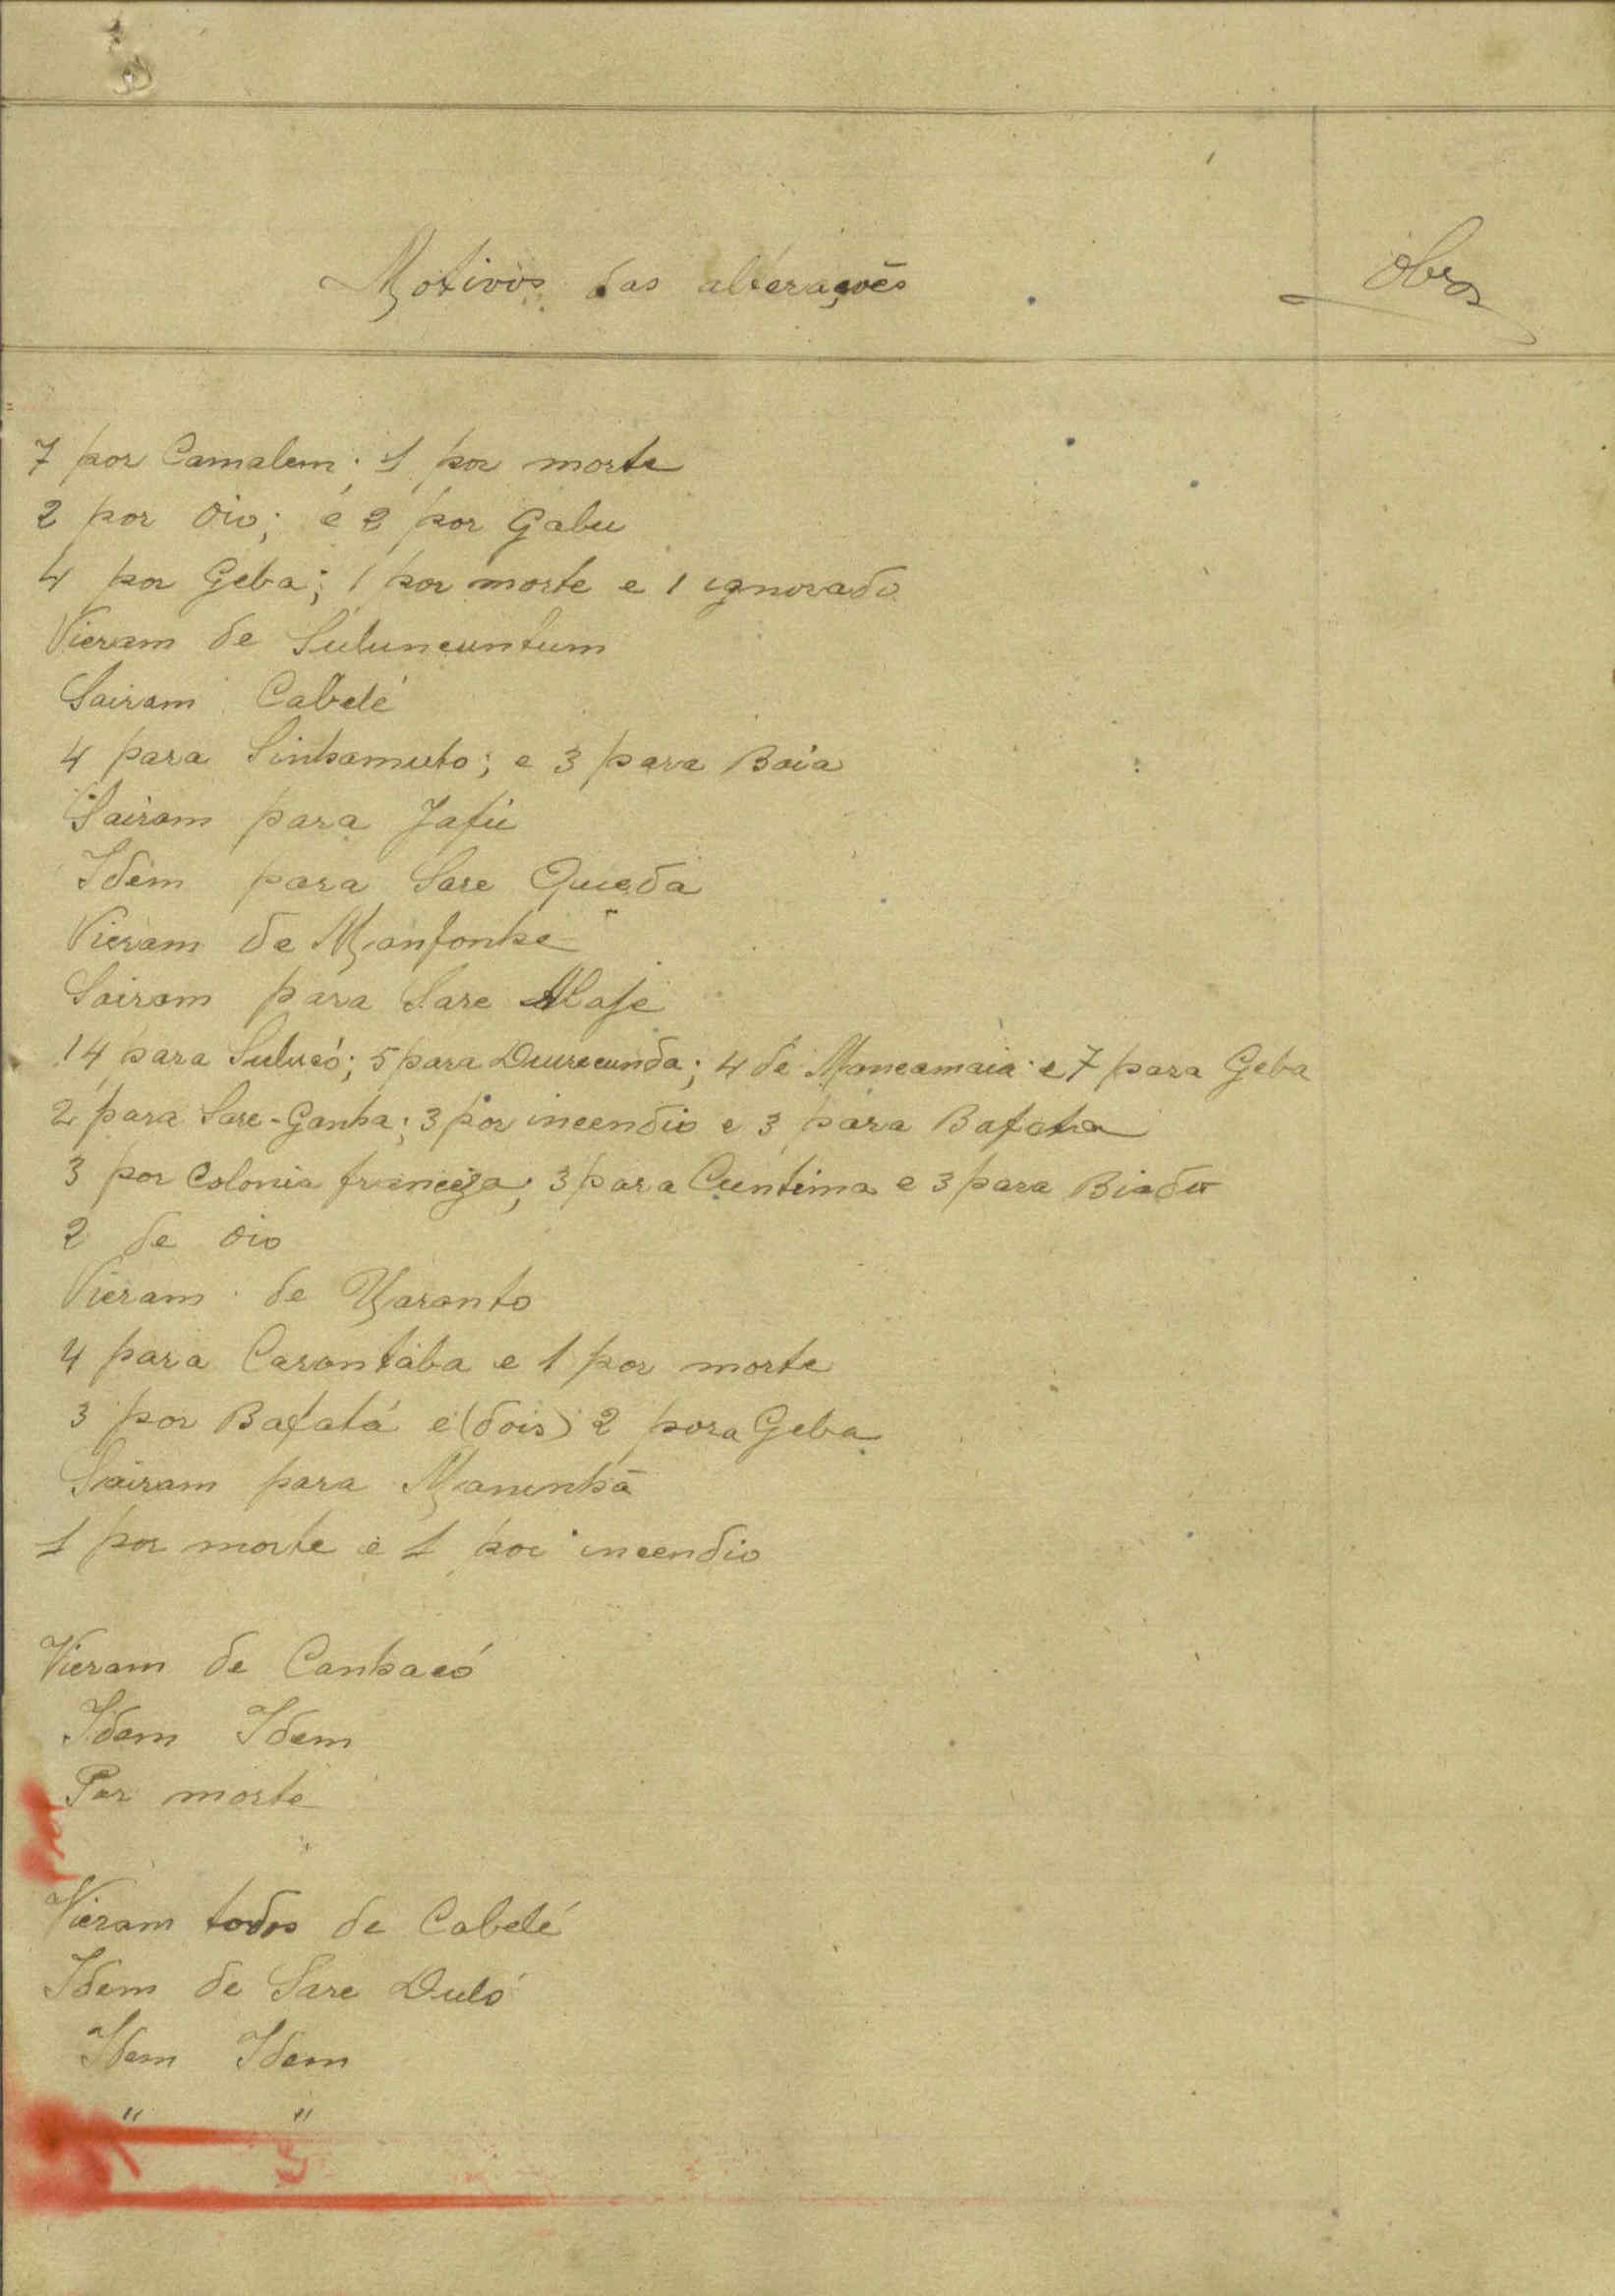 Motivos das alterações
Obs
7 por Camalem; 1 por morte
2 por Oio; e 2 por Gabu
4 por Geba; 1 por morte e 1 ignorado
Vieram de Suluncuntum
Sairam Cabelé
4 para Sinhamuto; e 3 para Baia
Sairam para Jafú
Idem para Sare Queda
Vieram de Manfonhe
Sairam para Sare
14 para Sulucó; 5 para Durecunda; 4 de Mancamaia e 7 para Geba
2 para Sare-Ganha; 3 por incendio e 3 para Bafata
3 por Colonia franceza; 3 para Cuntima e 3 para Biadu
2 de Oio
Vieram de Maranto
4 para Carantaba e 1 por morte
3 por Bafatá e (dois) 2 para Geba
Sairam para Maninhã
1 por morte e 1 por incendio
Vieram de Canhacó
Idem Idem
Por morte
Vieram todos de Cabelé
Idem de Sare Duló
Idem Idem
" "